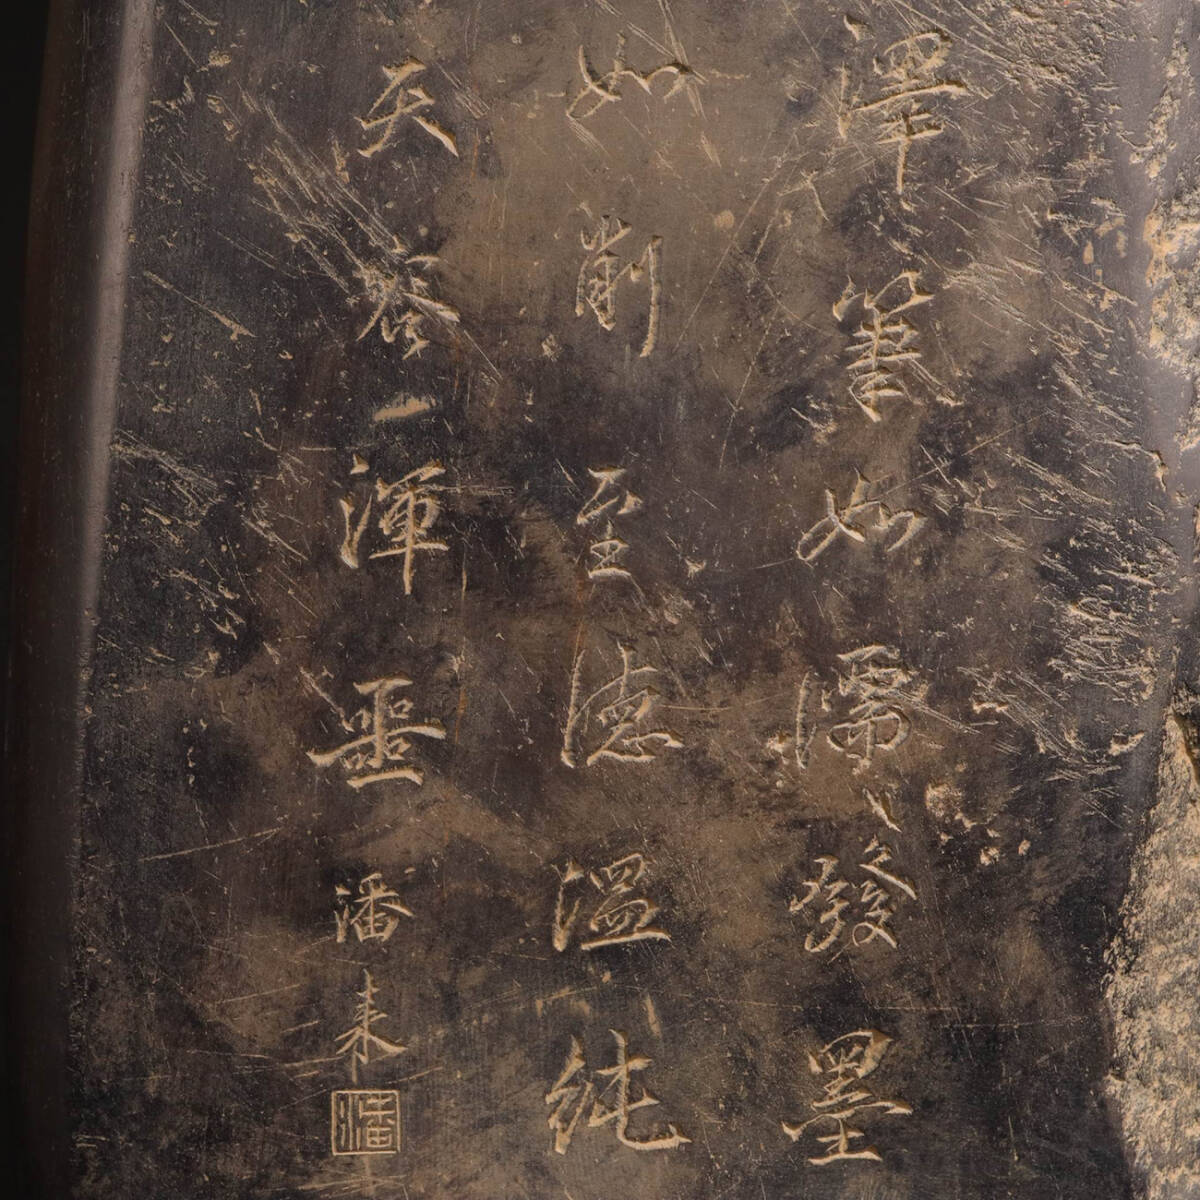 澤筆如濡發墨
如削至德溫純
天渾噩
潘耒